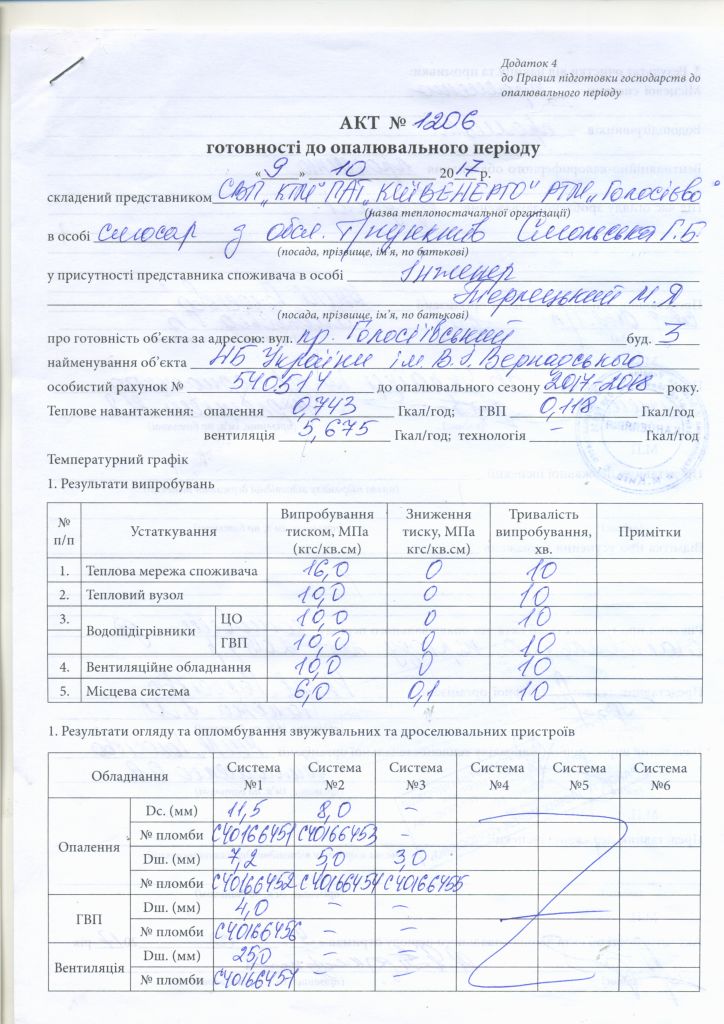 Додаток 4
до Правил підготовки господарств до
опалювального періоду
АКТ № 1206
готовності до опалювального періоду
« 9 » 10 2017 р.
складений представником СВП „КТМ" ПАТ „КИЇВЕНЕРГО" РТМ „Голосієво"
(назва теплопостачальної організації)
в особі слюсар з обсл. т/пунктів Смольська Г.Б.
(посада, прізвище, ім'я, по батькові)
у присутності представника споживача в особі Інженер
М.Я
(посада, прізвище, ім'я, по батькові)
про готовність об'єкта за адресою: вул. пр. Голосіївський буд. 3
найменування об'єкта НБ України ім. В.І. Вернадського
особистий рахунок № 540514 до опалювального сезону 2017-2018 року.
Теплове навантаження: опалення 0,743 Гкал/год; ГВП 0,118 Гкал/год
вентиляція 5,675 Гкал/год; технологія – Гкал/год
Температурний графік
1. Результати випробувань
№ п/п Устаткування Випробування тиском, МПа (кгс/кв.см) Зниження тиску, МПа кгс/кв.см) Тривалість випробування, хв. Примітки
1. Теплова мережа споживача 16,0 0 10
2. Тепловий вузол 10,0 0 10
3. Водопідігрівники ЦО 10,0 0 10
ГВП 10,0 0 10
4. Вентиляційне обладнання 10,0 0 10
5. Місцева система 6,0 0,1 10
1. Результати огляду та опломбування звужувальних та дроселювальних пристроїв
Обладнання Система №1 Система №2 Система №3 Система №4 Система №5 Система №6
Опалення Dс. (мм) 11,5 8,0 –
№ пломби С40166451 С40166453 –
Dш. (мм) 7,2 5,0 3,0
№ пломби С40166452 С40166454 С40166455
ГВП Dш. (мм) 4,0 – –
№ пломби С40166456 – –
Вентиляція Dш. (мм) 25,0 – –
№ пломби С40166457 – –